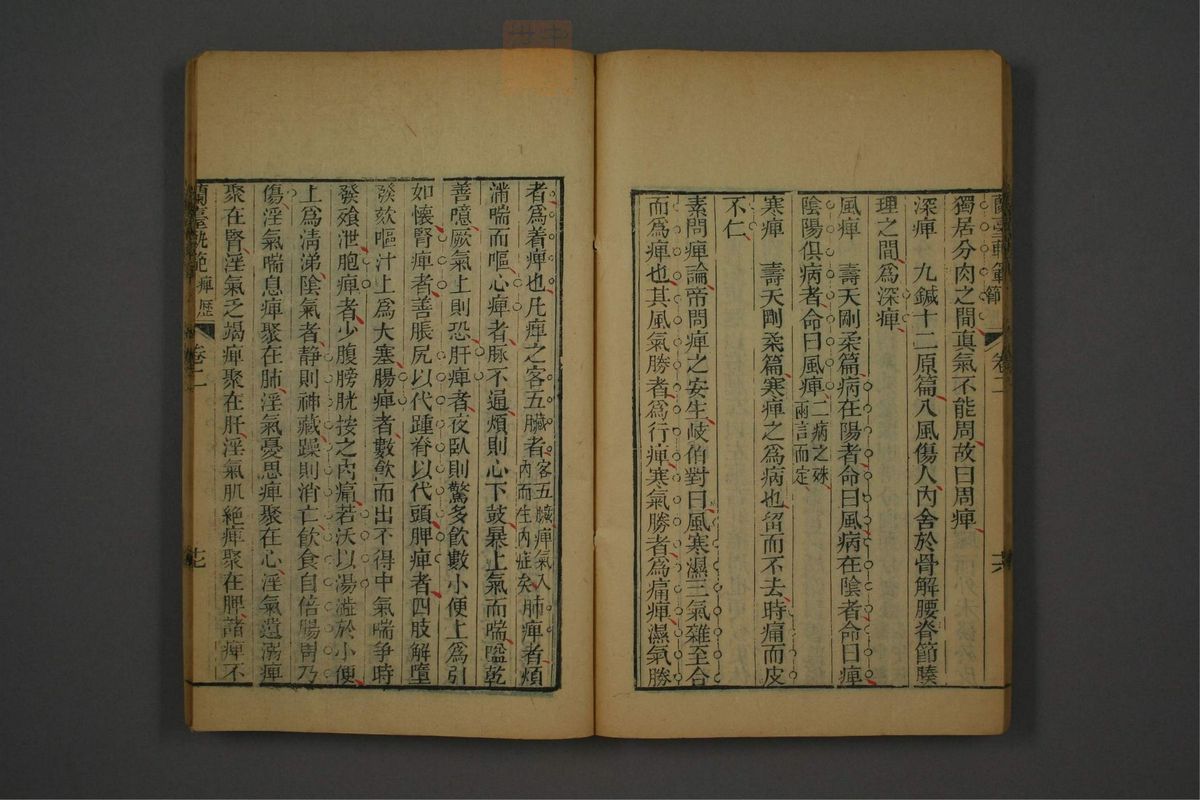 蘭臺軌範 卷二 十六
獨居分肉之間眞氣不能周故曰周痺
深痺 九鍼十二原篇八風傷人內舍於骨解腰脊節腠
理之間爲深痺
風痺 壽天剛柔篇病在陽者命曰風病在陰者命曰痺
陰陽俱病者命曰風痺二病之殊兩言而定
寒痺 壽天剛柔篇寒痺之爲病也留而不去時痛而皮
不仁
素問痺論帝問痺之安生岐伯對曰風寒濕三氣雜至合
而爲痺也其風氣勝者爲行痺寒氣勝者爲痛痺濕氣勝
者爲着痺也凡痺之客五臟者客五臟痺氣入內而生內症矣肺痺者煩
滿喘而嘔心痺者脉不通煩則心下鼓暴上氣而喘嗌乾
善噫厥氣上則恐肝痺者夜臥則驚多飲數小便上爲引
如懷腎痺者善脹尻以代踵脊以代頭脾痺者四肢解墮
發欬嘔汁上爲大塞腸痺者數飲而出不得中氣喘爭時
發飱泄胞痺者少腹膀胱按之內痛若沃以湯澁於小便
上爲淸涕陰氣者靜則神藏躁則消亡飲食自倍腸胃乃
傷淫氣喘息痺聚在肺淫氣憂思痺聚在心淫氣遺溺痺
聚在腎淫氣乏竭痺聚在肝淫氣肌絶痺聚在脾諸痺不
蘭臺軌範 痺歷 卷二 十七